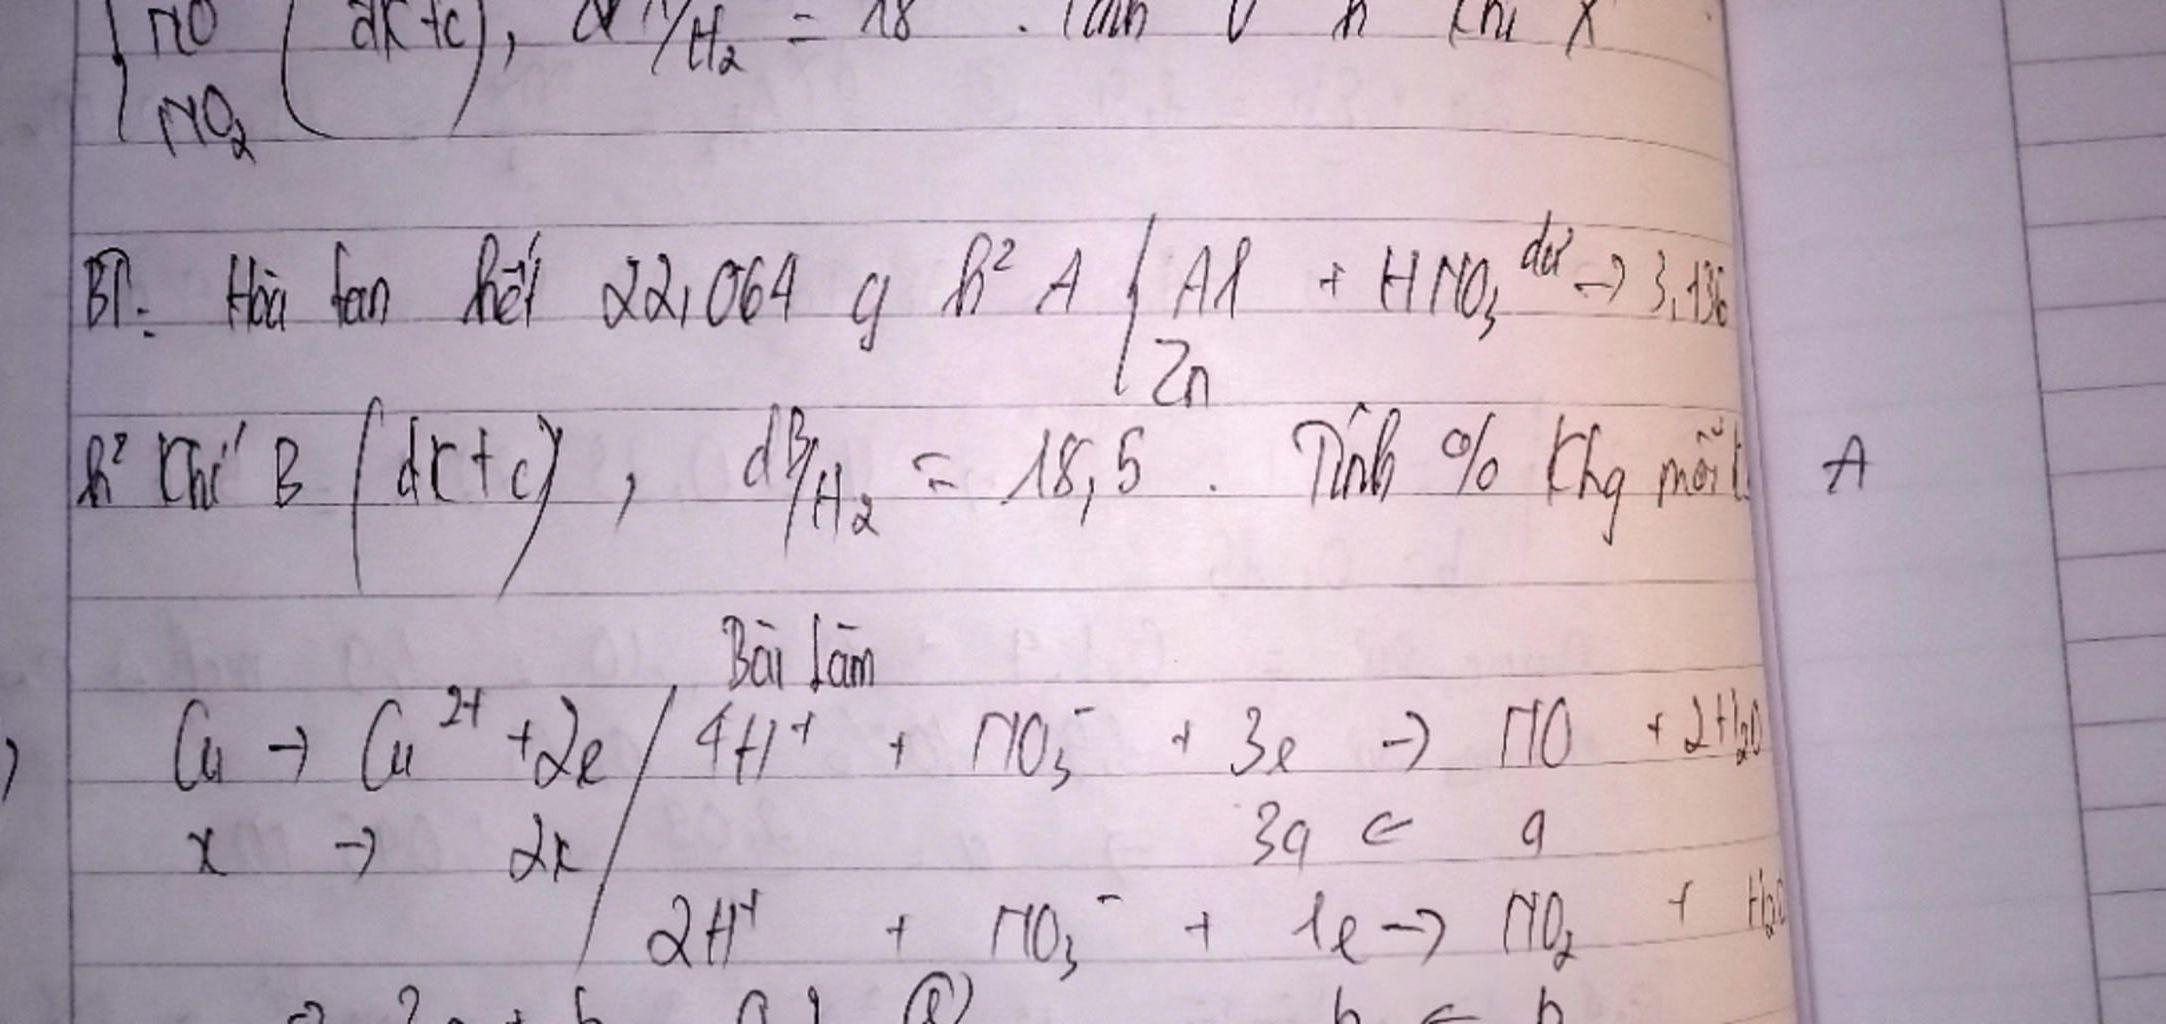 NO (đktc), d X/H2 = 18. Tính V h² khí X
NO2
BT: Hòa tan hết 22,064 g h² A { Al + HNO3 dư → 3,136
Zn
h² khí B (đktc), d B/H2 = 18,5. Tính % khg mỗi A
Bài làm
Cu → Cu²⁺ + 2e / 4H⁺ + NO3⁻ + 3e → NO + 2H2O
x → 2x 3a ← a
2H⁺ + NO3⁻ + 1e → NO2 + H2O
b ← b